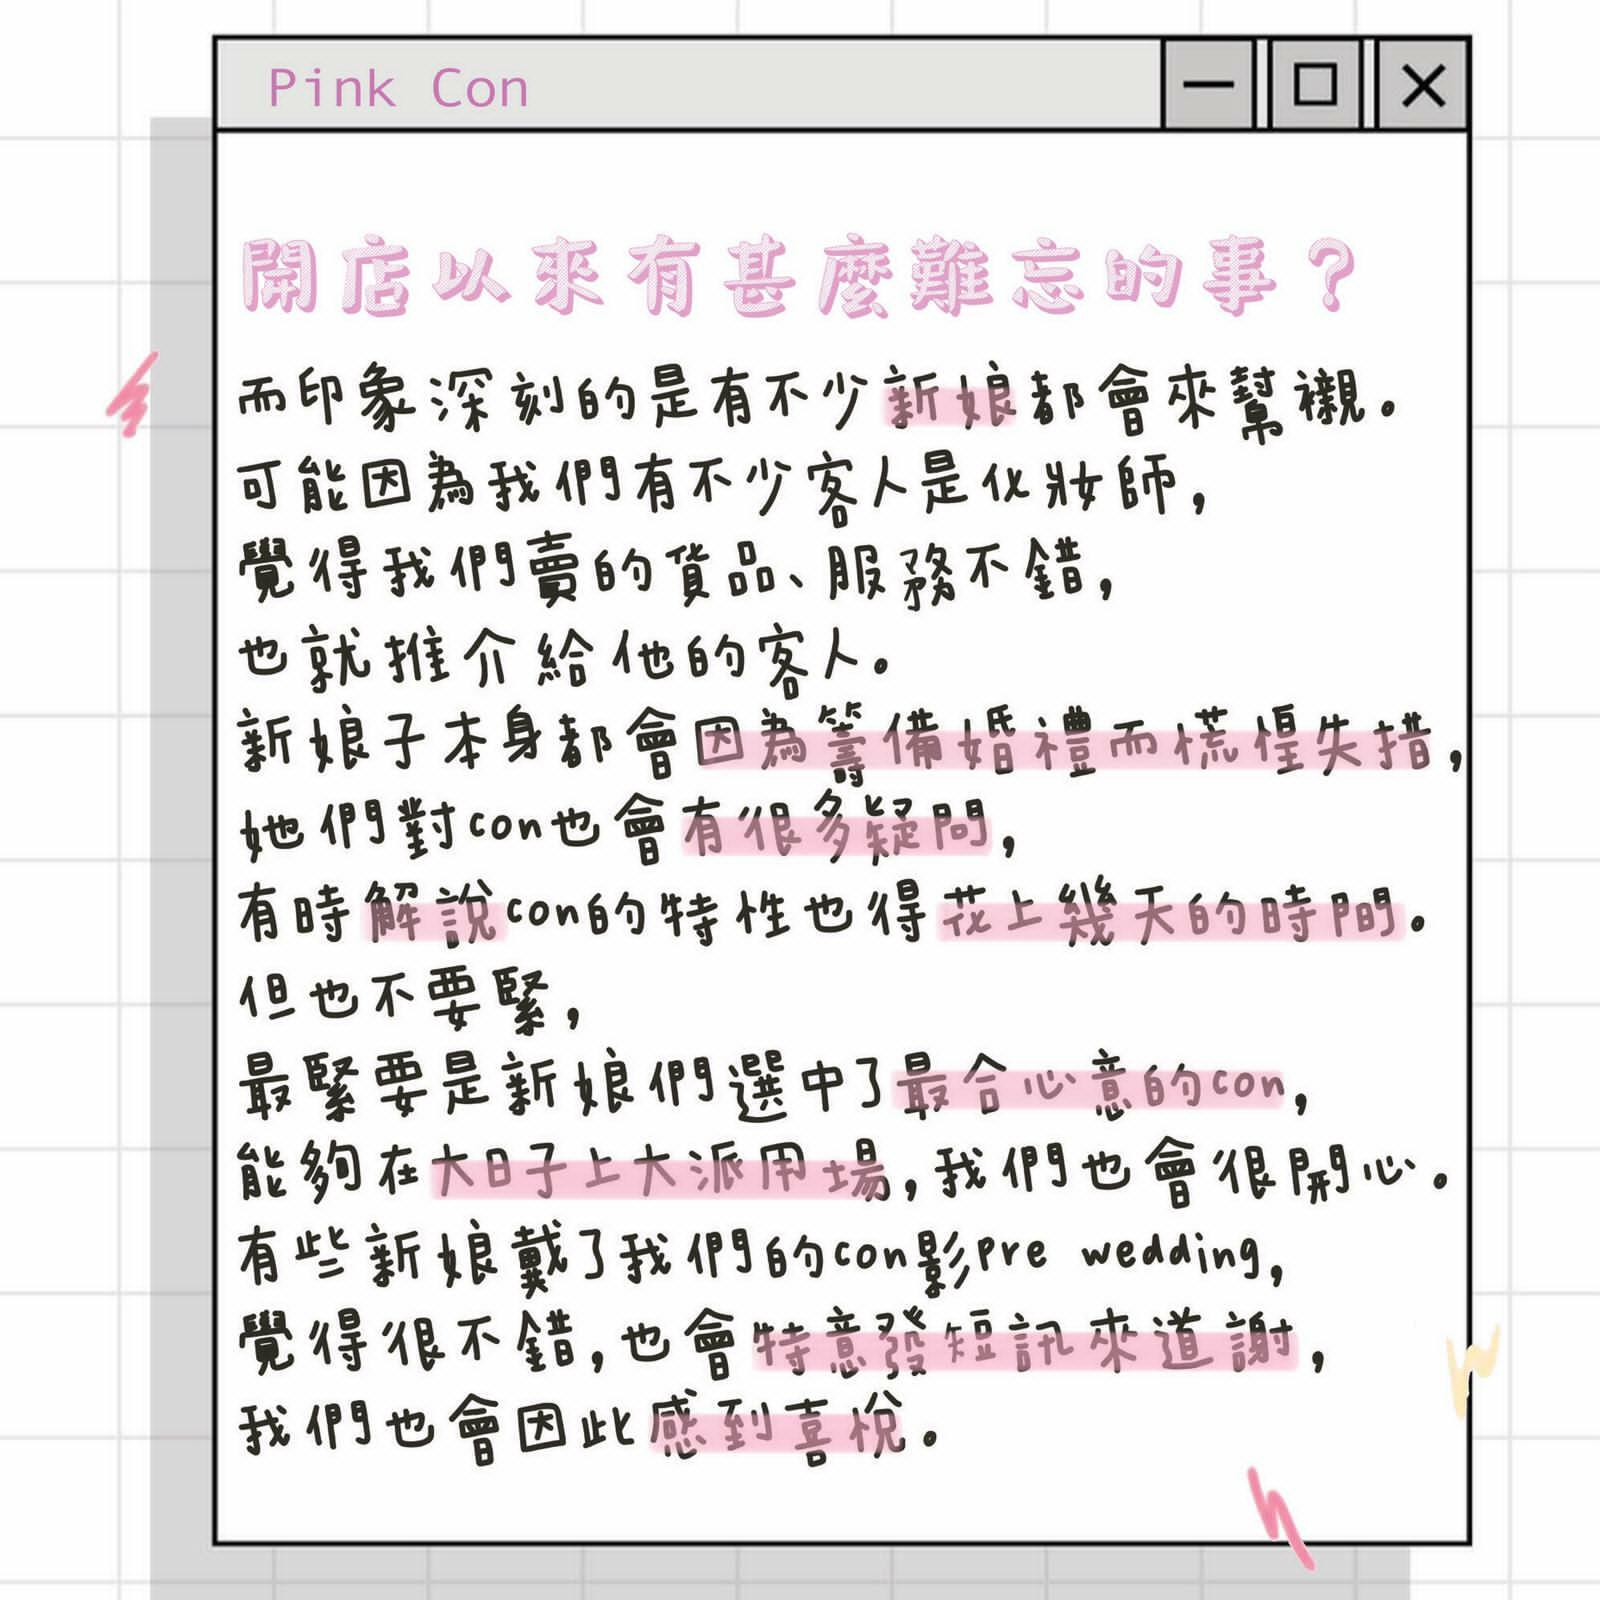 Pink Con
開店以來有甚麼難忘的事？
而印象深刻的是有不少新娘都會來幫襯。
可能因為我們有不少客人是化妝師，
覺得我們賣的貨品、服務不錯，
也就推介給他的客人。
新娘子本身都會因為籌備婚禮而慌惶失措，
她們對con也會有很多疑問，
有時解說con的特性也得花上幾天的時間。
但也不要緊，
最緊要是新娘們選中了最合心意的con，
能夠在大日子上大派用場，我們也會很開心。
有些新娘戴了我們的con影pre wedding，
覺得很不錯，也會特意發短訊來道謝，
我們也會因此感到喜悅。